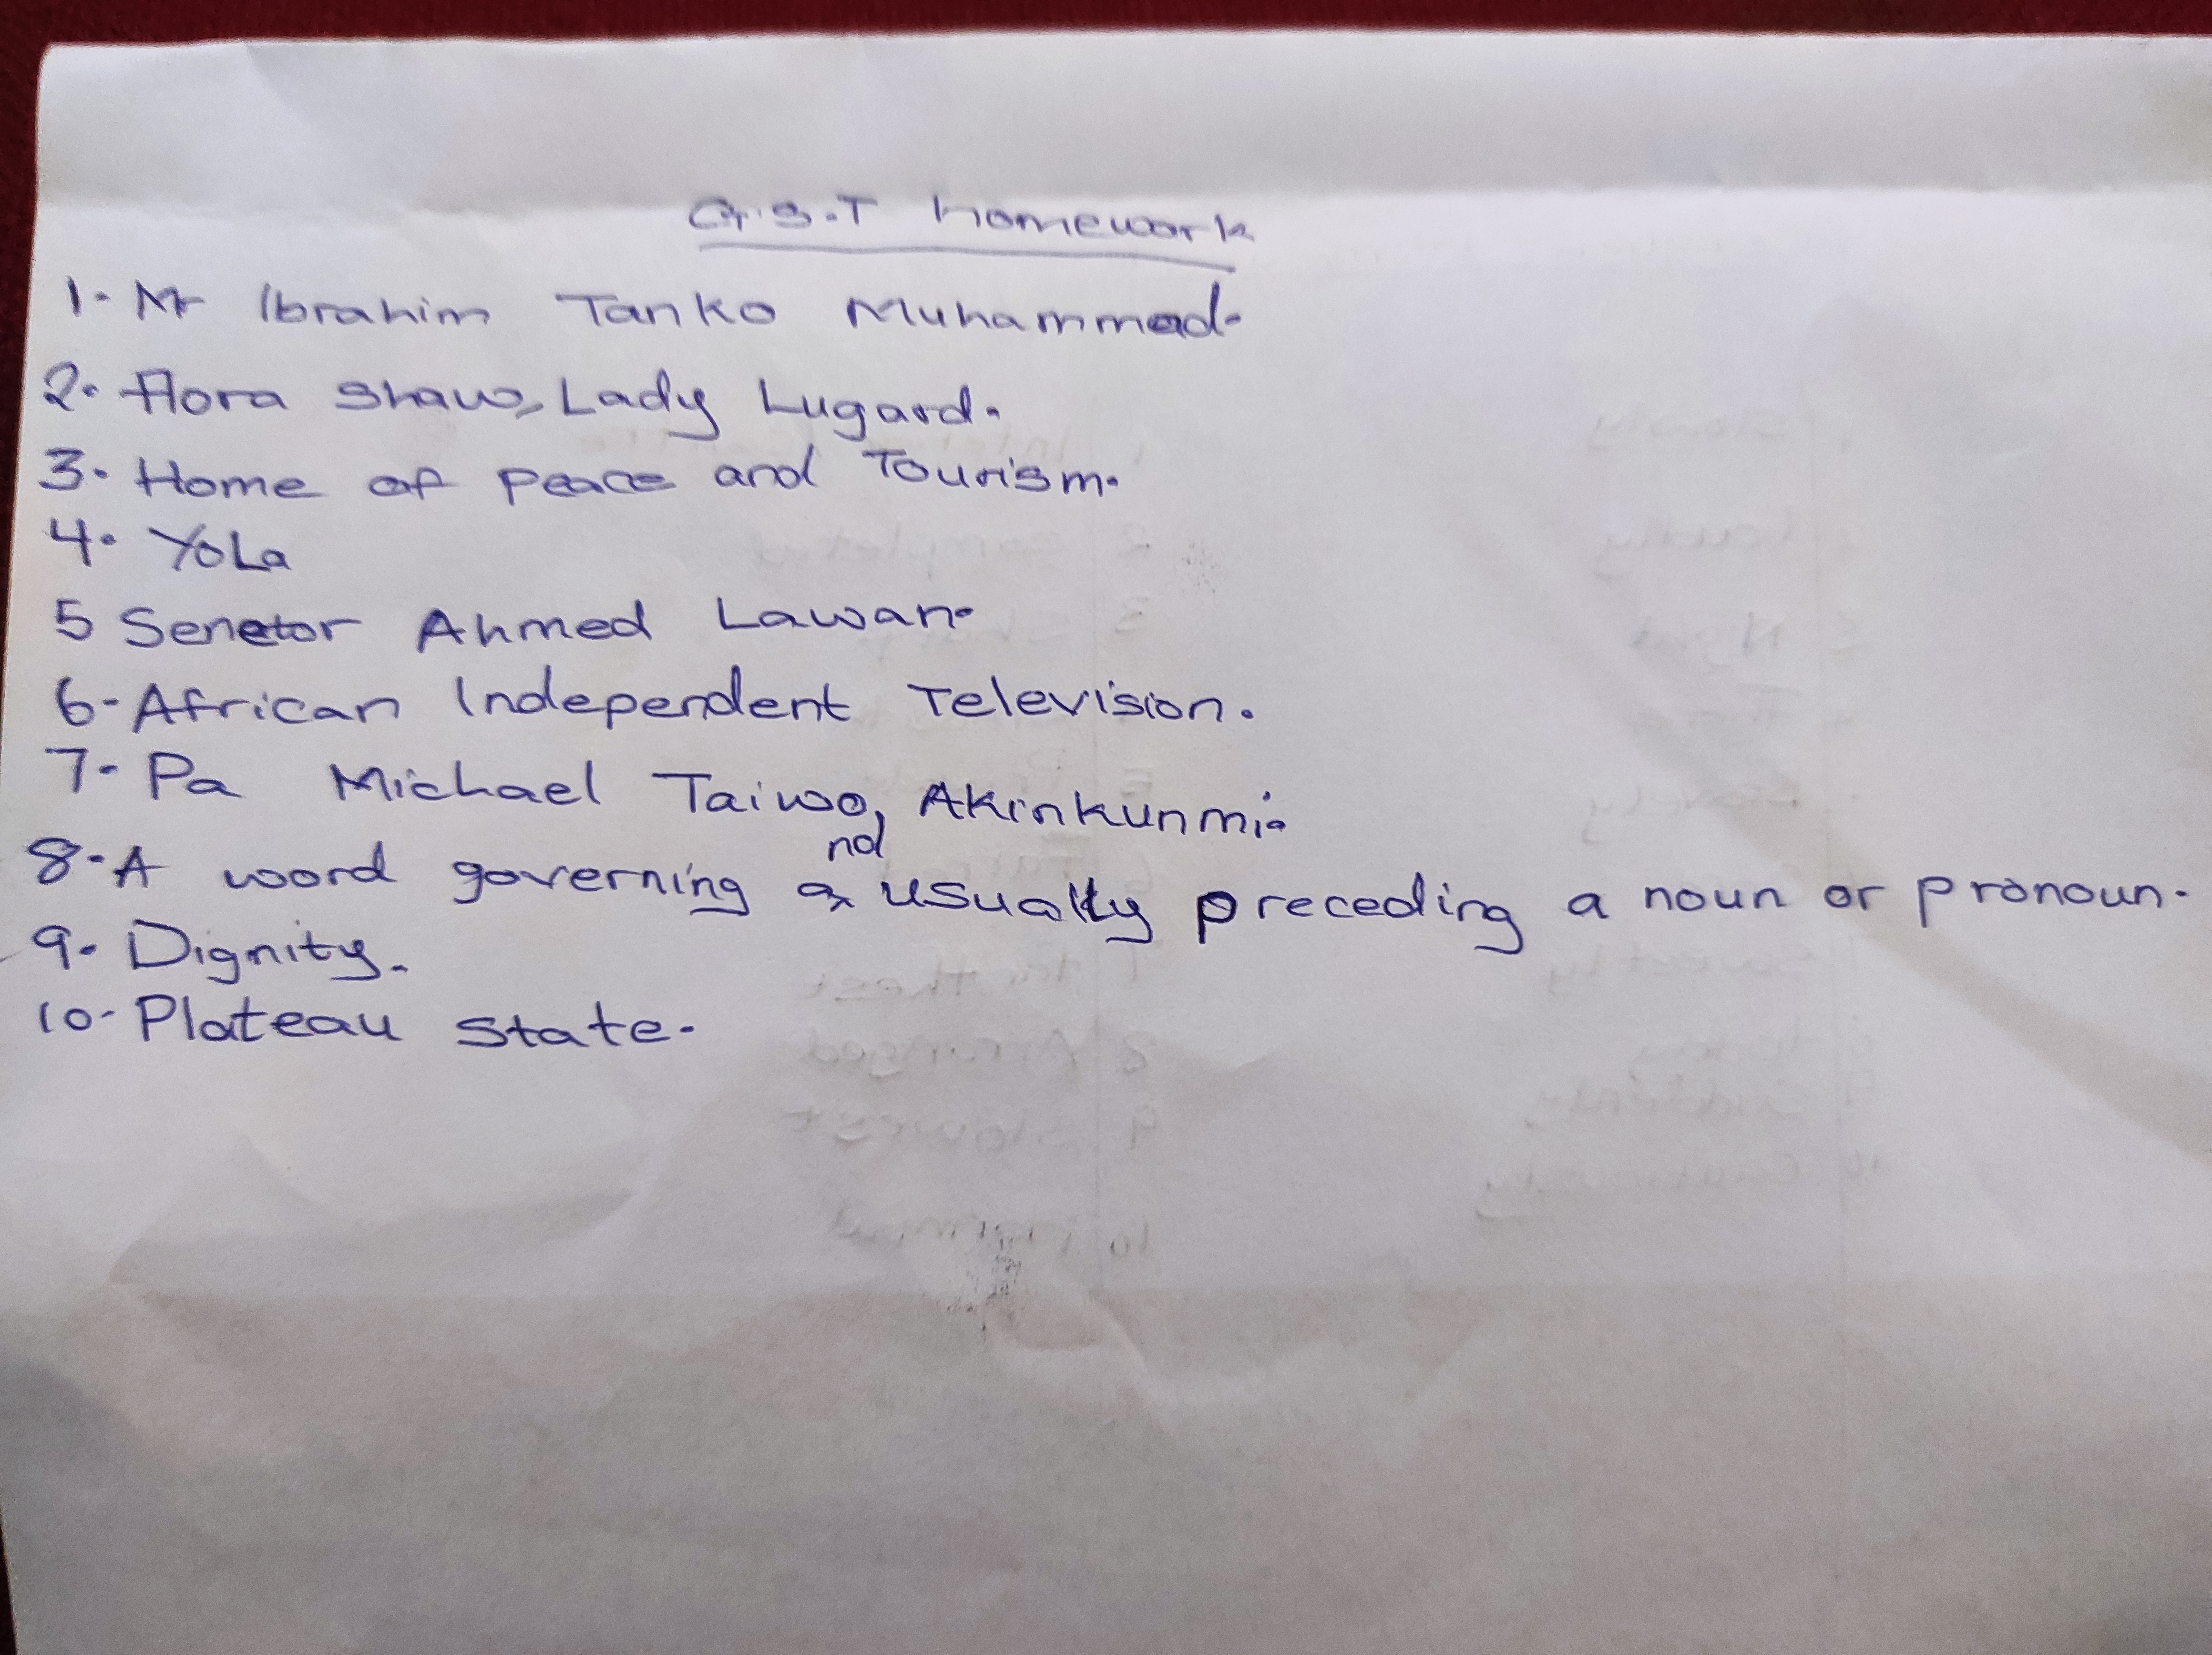 G.S.T homework
1. Mr Ibrahim Tanko Muhammad.
2. Flora Shaw, Lady Lugard.
3. Home of peace and Tourism.
4. YoLa
5 Senetor Ahmed Lawan.
6- African Independent Television.
7- Pa Michael Taiwo, Akinkunmi.
8- A word governing and usually preceding a noun or pronoun.
9. Dignity.
10- Plateau State.